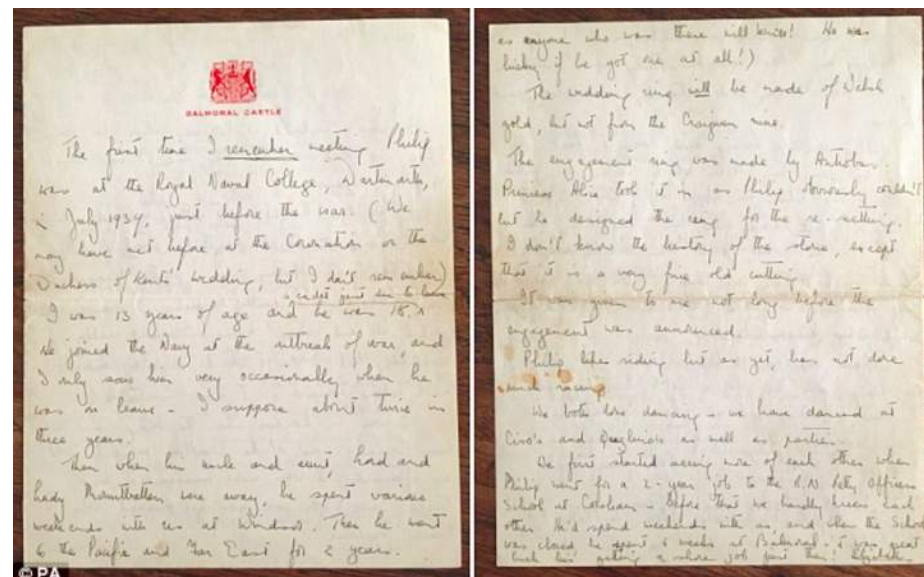 BALMORAL CASTLE
The first time I remember meeting Philip
was at the Royal Naval College, Dartmouth,
in July 1939, just before the war. (We
may have met before at the Coronation or the
Duchess of Kent's wedding, but I don't remember)
a cadet just due to leave
I was 13 years of age and he was 18
He joined the Navy at the outbreak of war, and
I only saw him very occasionally when he
was on leave - I suppose about twice in
three years.
Then when his uncle and aunt, Lord and
Lady Mountbatten were away, he spent various
weekends with us at Windsor. Then he went
to the Pacific and Far East for 2 years.
© PA
as anyone who was there will know! He was
lucky if he got one at all!)
The wedding ring will be made of Welsh
gold, but not from the Craigwen mine.
The engagement ring was made by Antrobus.
Princess Alice took it in as Philip obviously couldn't
but he designed the ring for the re-setting.
I don't know the history of the stone, except
that it is a very fine old cutting
It was given to me not long before the
engagement was announced.
Philip likes riding but as yet, has not done
much racing
We both love dancing - we have danced at
Ciro's and Quaglino's as well as parties.
We first started seeing more of each other when
Philip went for a 2-year job to the R.N. Petty Officers
School at Corsham - Before that we hardly knew each
other. He'd spend weekends with us, and when the School
was closed he spent 6 weeks at Balmoral - it was great
luck his getting a shore job just then! Elizabeth.